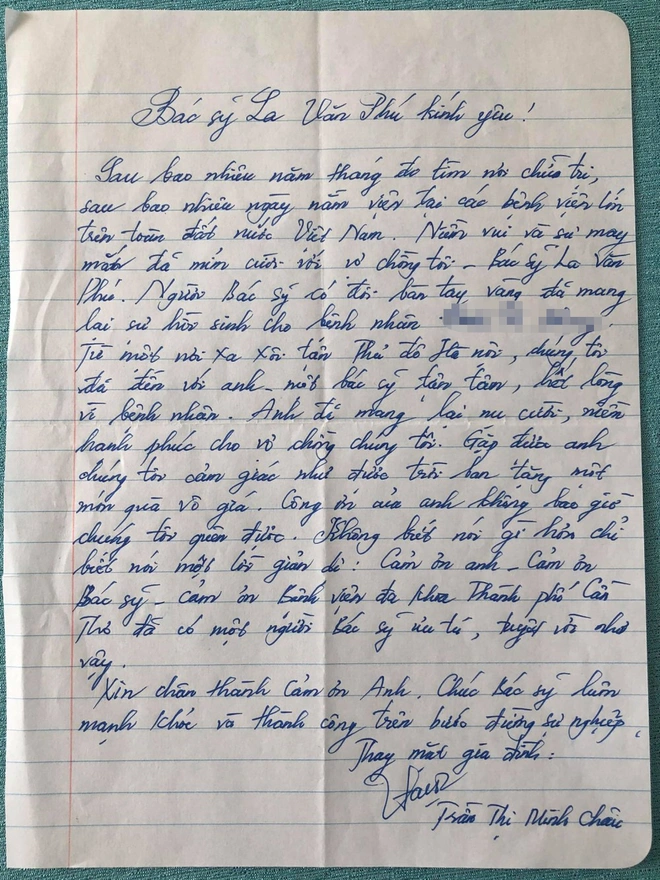 Bác sỹ La Văn Phú kính yêu !
Sau bao nhiêu năm tháng dò tìm nơi chữa trị,
sau bao nhiêu ngày nằm viện tại các bệnh viện lớn
trên toàn đất nước Việt Nam. Niềm vui và sự may
mắn đã mỉm cười với vợ chồng tôi - Bác sỹ La Văn
Phú. Người Bác sỹ có đôi bàn tay vàng đã mang
lại sự hồi sinh cho bệnh nhân
Từ một nơi xa xôi tận Thủ đô Hà nội, chúng tôi
đã đến với anh - một bác sỹ tận tâm, hết lòng
vì bệnh nhân. Anh đã mang lại nụ cười, niềm
hạnh phúc cho vợ chồng chúng tôi. Gặp được anh
chúng tôi cảm giác như được trời ban tặng một
món quà vô giá. Công ơn của anh không bao giờ
chúng tôi quên được. Không biết nói gì hơn chỉ
biết nói một lời giản dị : Cảm ơn anh - Cảm ơn
Bác sỹ - cảm ơn Bệnh viện đa khoa Thành phố Cần
Thơ đã có một người Bác sỹ ưu tú, tuyệt vời như
vậy.
Xin chân thành cảm ơn Anh. Chúc Bác sỹ luôn
mạnh khỏe và thành công trên bước đường sự nghiệp.
Thay mặt gia đình :
Trần Thị Minh Châu